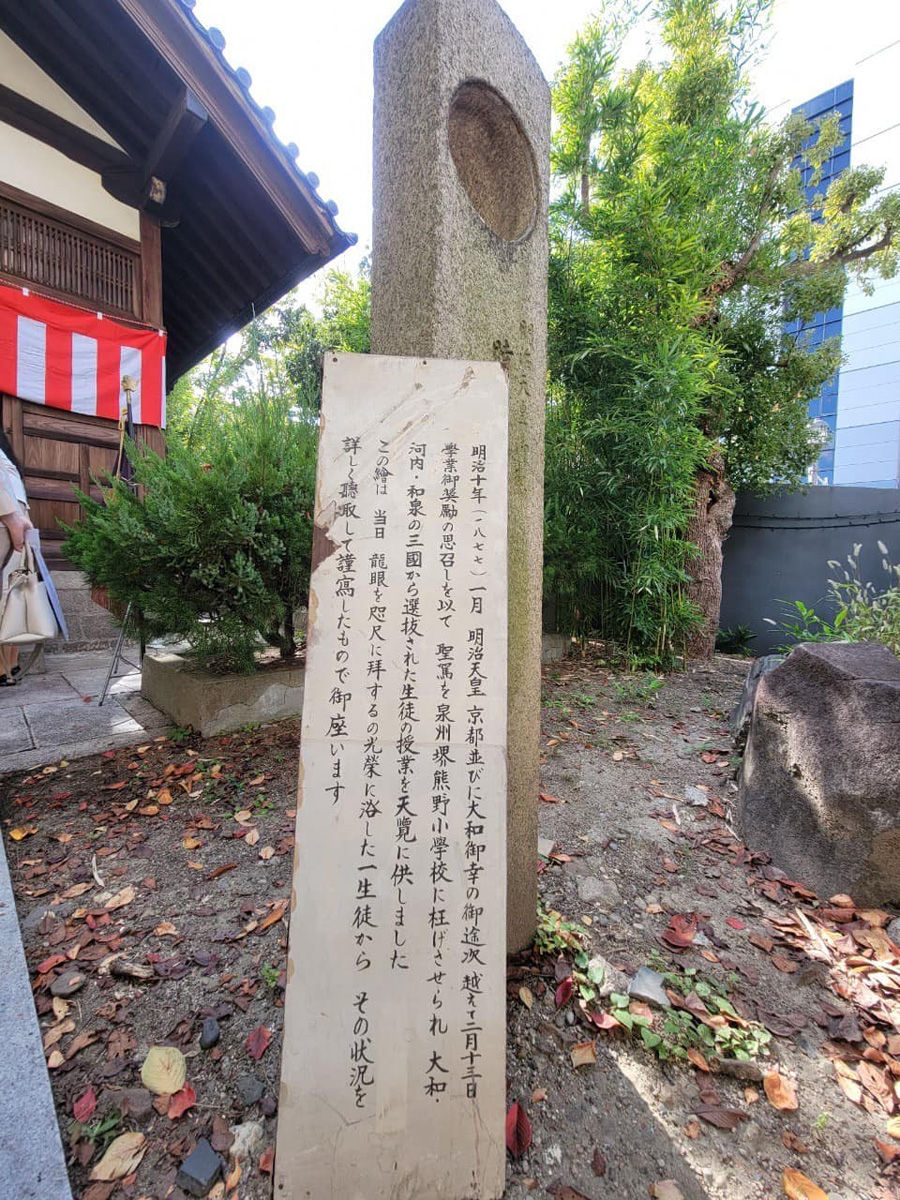 明治十年(一八七七)一月 明治天皇 京都並びに大和御幸の御途次 越えて二月十三日
學業御奨勵の思召しを以て 聖駕を泉州堺熊野小學校に枉げさせられ 大和・
河内・和泉の三國から選抜された生徒の授業を天覽に供しました
この繪は 当日 龍眼を咫尺に拜するの光榮に浴した一生徒から その状況を
詳しく聽取して謹寫したもので御座います